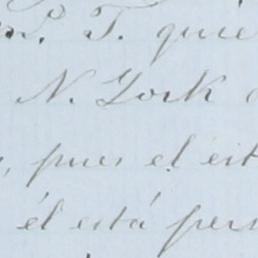 P. T. quie
N. York
, pues el est
él está pers